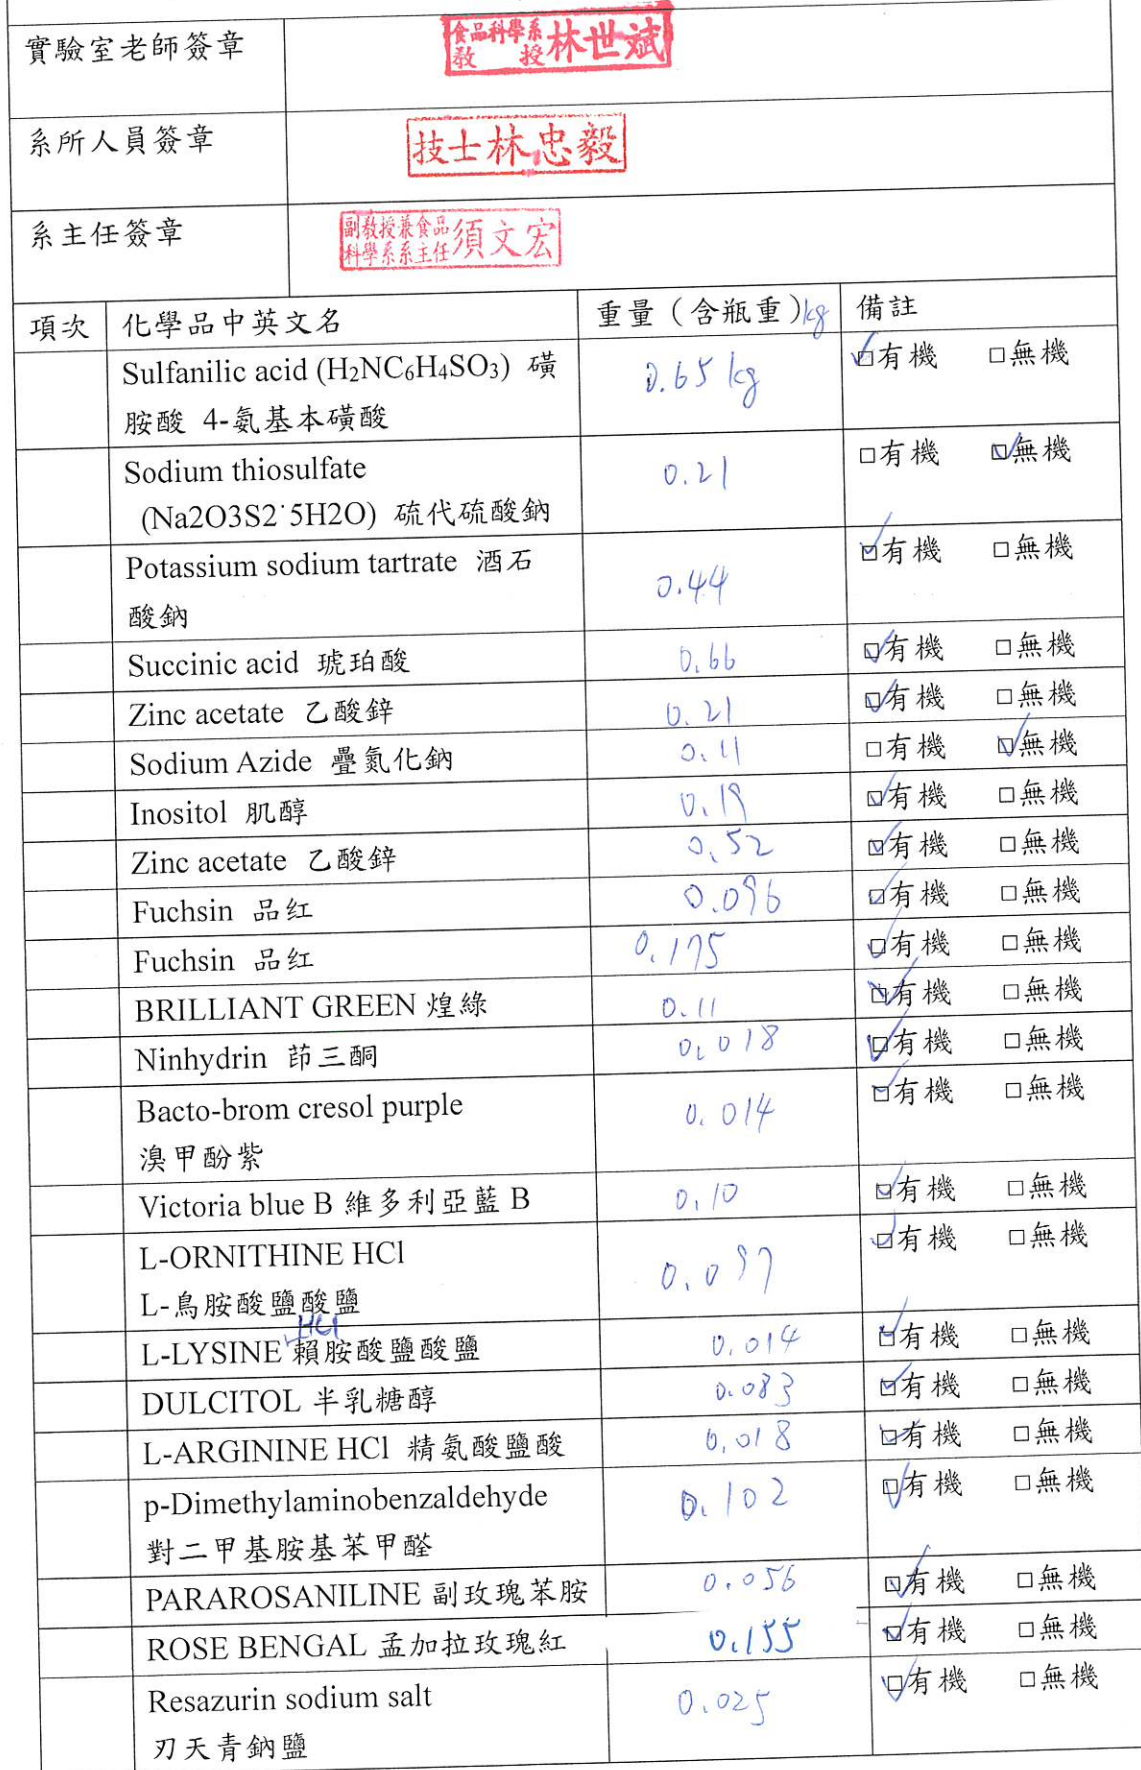 實驗室老師簽章
食品科學系
教 授 林世斌
系所人員簽章
技士林忠毅
系主任簽章
副教授兼食品
科學系系主任 須文宏
項次 化學品中英文名 重量（含瓶重）kg 備註
Sulfanilic acid (H₂NC₆H₄SO₃) 磺 0.65 kg ☑有機 □無機
胺酸 4-氨基本磺酸
Sodium thiosulfate 0.21 □有機 ☑無機
(Na2O3S2˙5H2O) 硫代硫酸鈉
Potassium sodium tartrate 酒石 0.44 ☑有機 □無機
酸鈉
Succinic acid 琥珀酸 0.66 ☑有機 □無機
Zinc acetate 乙酸鋅 0.21 ☑有機 □無機
Sodium Azide 疊氮化鈉 0.11 □有機 ☑無機
Inositol 肌醇 0.19 ☑有機 □無機
Zinc acetate 乙酸鋅 0.52 ☑有機 □無機
Fuchsin 品红 0.096 ☑有機 □無機
Fuchsin 品红 0.175 ☑有機 □無機
BRILLIANT GREEN 煌綠 0.11 ☑有機 □無機
Ninhydrin 茚三酮 0.018 ☑有機 □無機
Bacto-brom cresol purple 0.014 ☑有機 □無機
溴甲酚紫
Victoria blue B 維多利亞藍 B 0.10 ☑有機 □無機
L-ORNITHINE HCl 0.097 ☑有機 □無機
L-鳥胺酸鹽酸鹽
HCl
L-LYSINE 賴胺酸鹽酸鹽 0.014 ☑有機 □無機
DULCITOL 半乳糖醇 0.083 ☑有機 □無機
L-ARGININE HCl 精氨酸鹽酸 0.018 ☑有機 □無機
p-Dimethylaminobenzaldehyde 0.102 ☑有機 □無機
對二甲基胺基苯甲醛
PARAROSANILINE 副玫瑰苯胺 0.056 ☑有機 □無機
ROSE BENGAL 孟加拉玫瑰紅 0.155 ☑有機 □無機
Resazurin sodium salt 0.025 ☑有機 □無機
刃天青鈉鹽